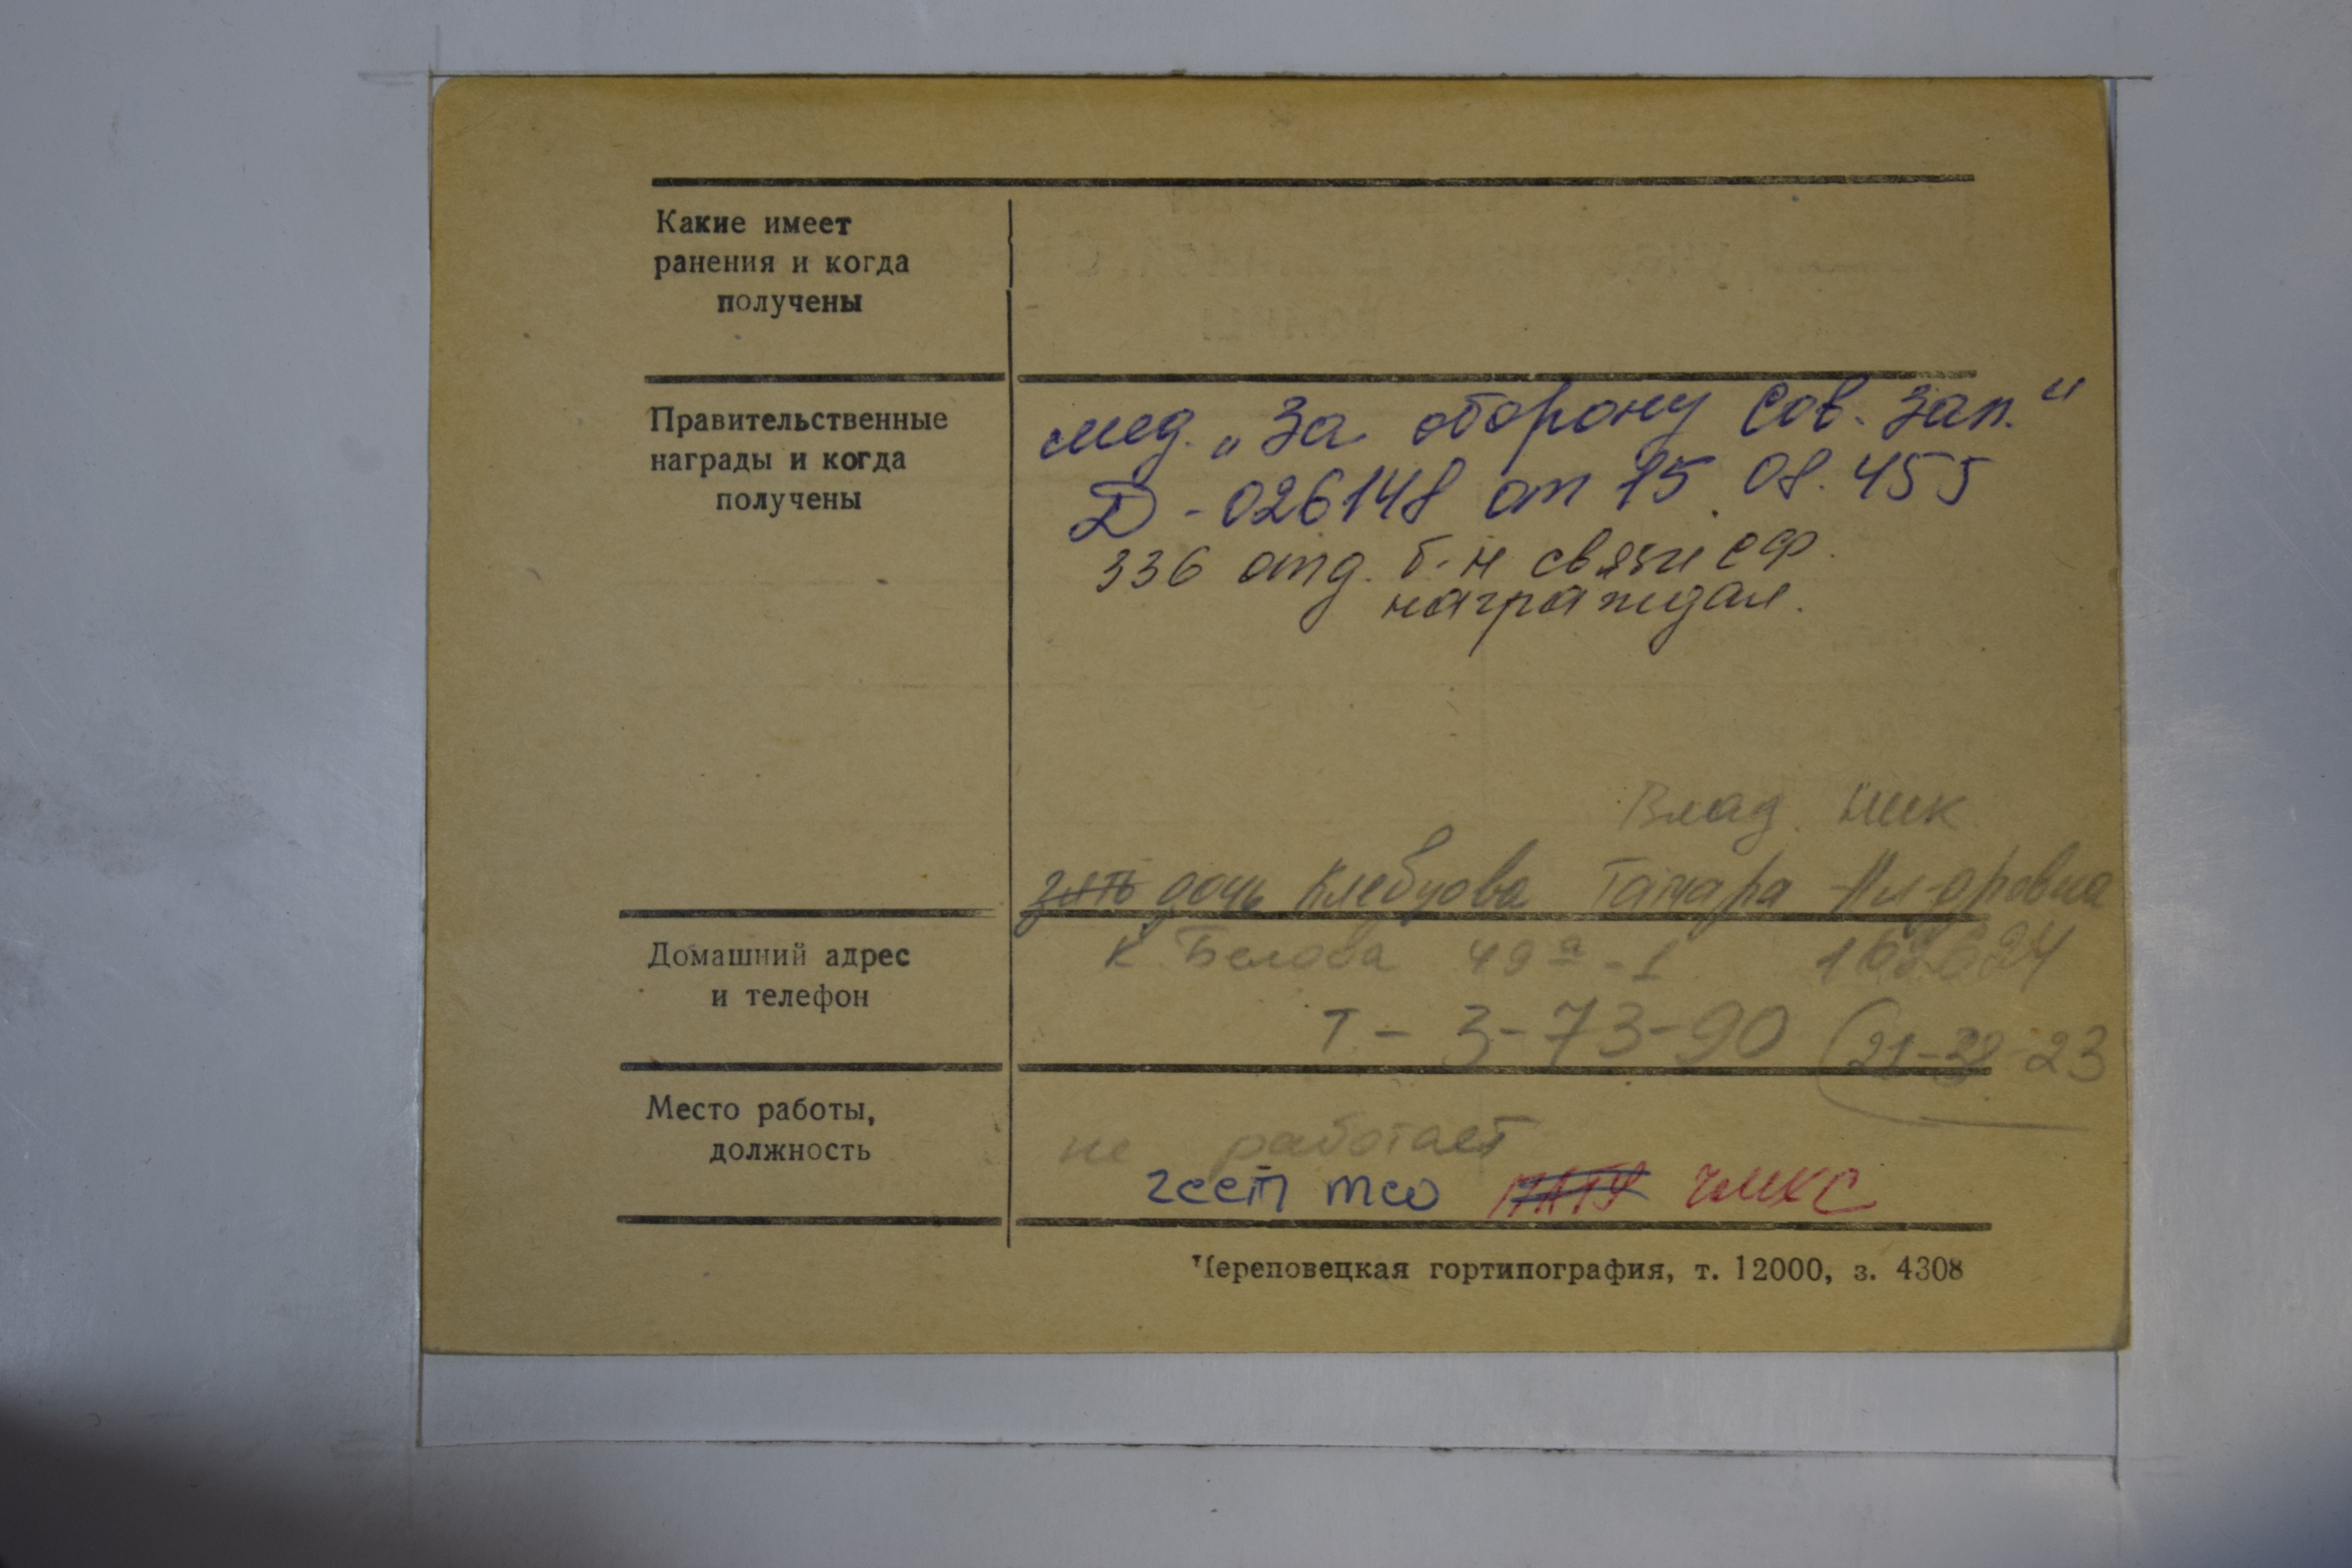 Какие имеет
ранения и когда
получены
Правительственные
награды и когда
получены
мед. „За оборону Сов. Зап.“
Д - 026148 от 15.08.45
336 отд. б-н связи СФ.
награждал.
Влад. Ник
зять дочь Клебцова Тамара Ал-дровна
Домашний адрес
и телефон
К. Белова 49а - 1
Т - 3-73-90 (21-32-23
Место работы,
должность
не работает
ЧМКС
Череповецкая гортипография, т. 12000, з. 4308